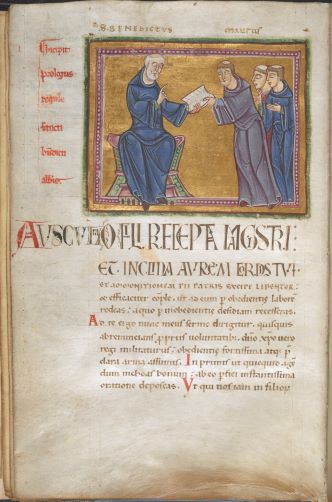 S. BENEDICTVS
MAVRVS
Incipit
prologus
regule
sancti
AUSCULTA O FILI PRECEPTA MAGISTRI
ET INCLINA AUREM CORDIS TUI
ET ADMONITIONEM PII PATRIS EXCIPE LIBENTER
et efficaciter cople. ut ad eum p obedientię laborē
redeas; a quo p inobedientię desidiam recesseras.
Ad te ergo nunc meus sermo dirigitur, quisquis
abrenuncians propriis voluntatibus. dno xpo vero
regi militaturus; obedientię fortissima atq; p
clara arma assumis. In primis ut quicquid agen
dum inchoas bonum; ab eo pfici instantissima
oratione deposcas. Ut qui nos iam in filior